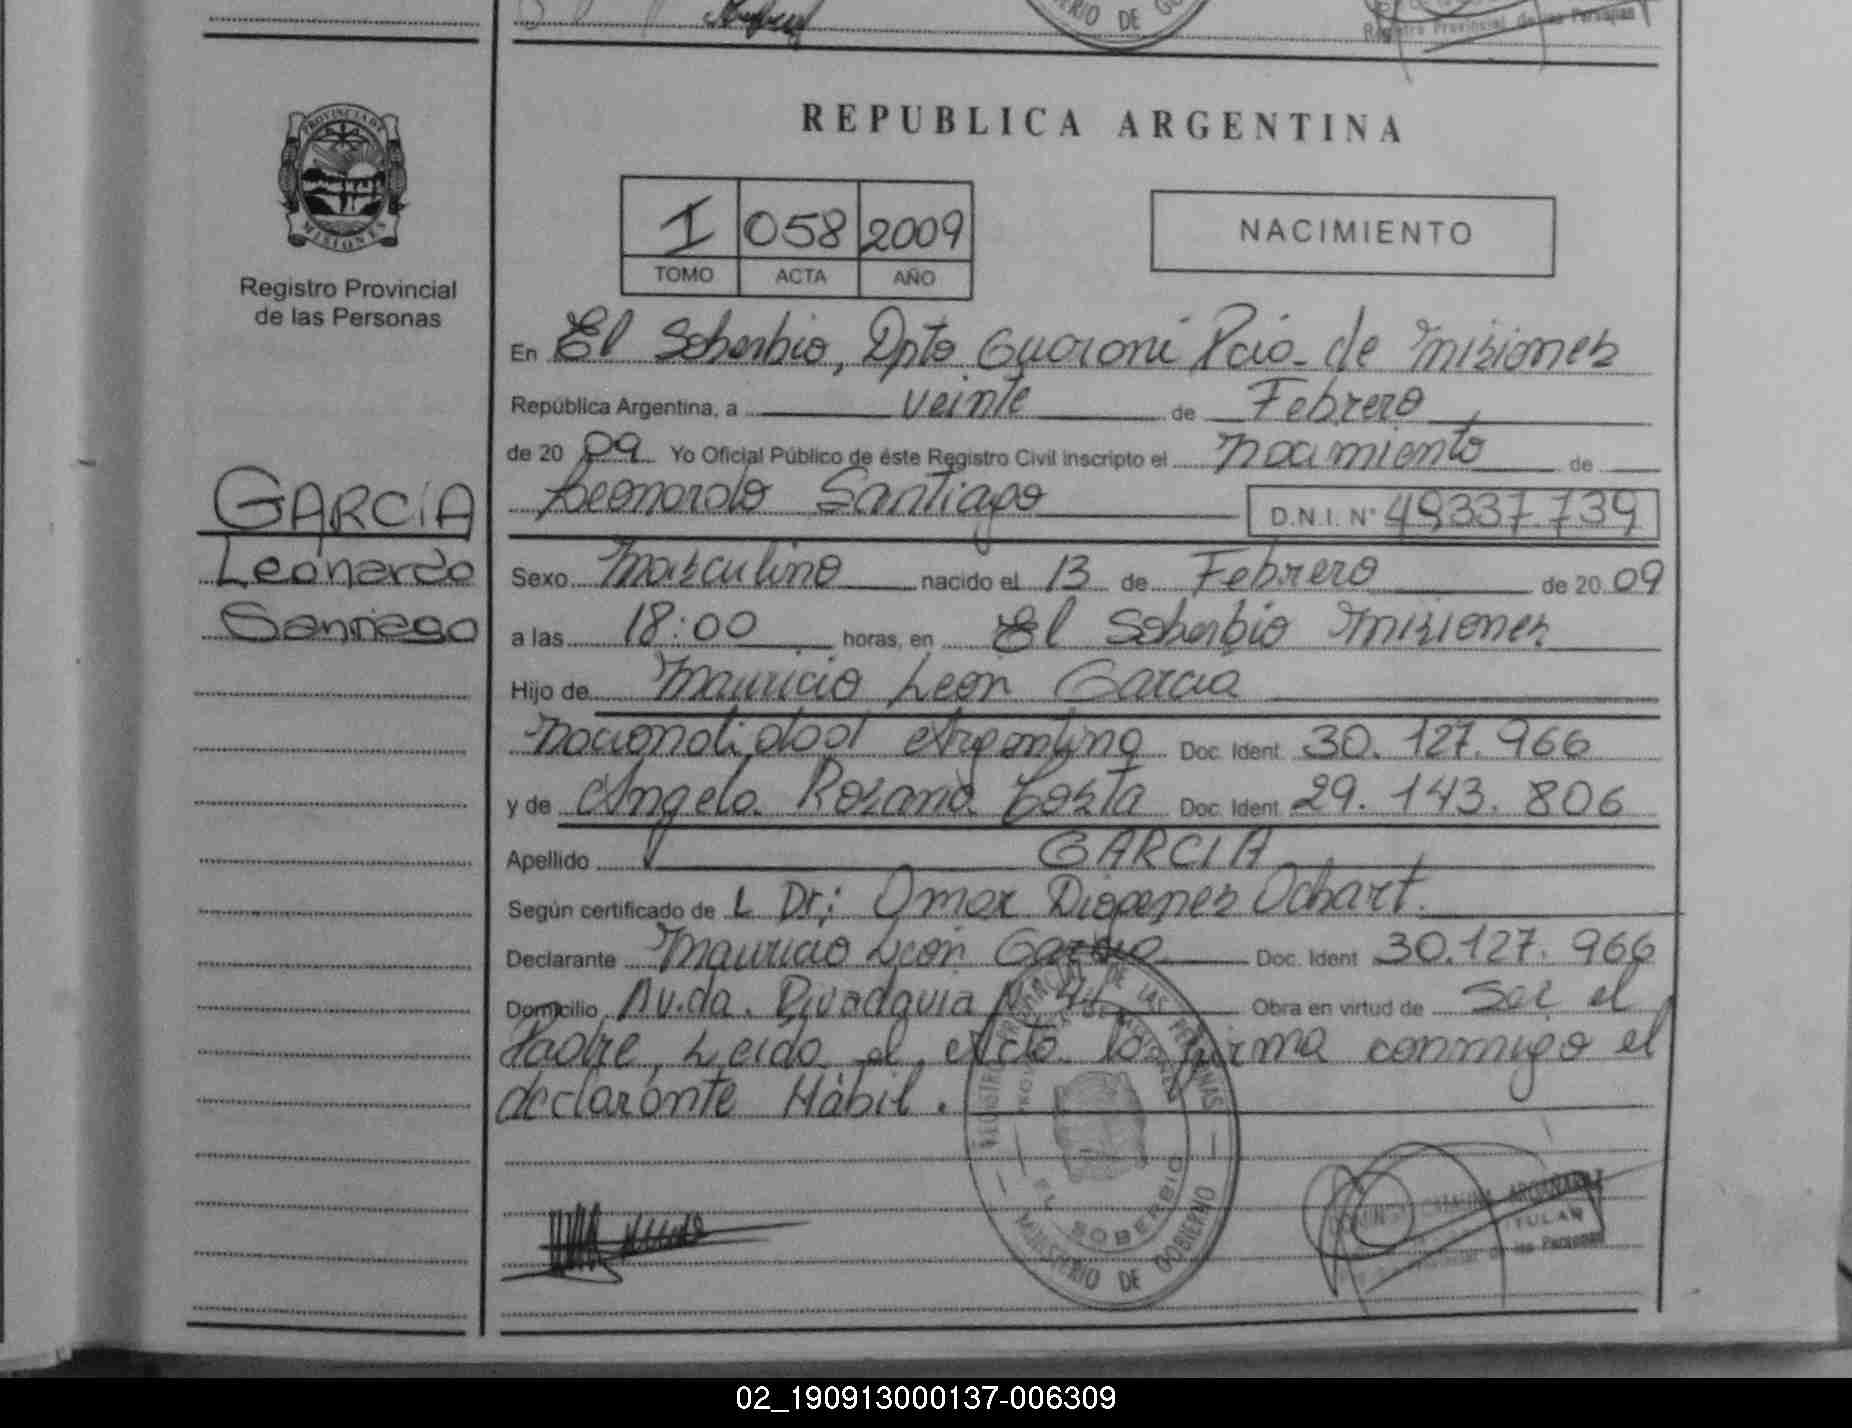 MINISTERIO DE GO
Registro Provincial de las Personas
PROVINCIA DE
MISIONES
Registro Provincial
de las Personas
GARCÍA
Leonardo
Santiago
REPUBLICA ARGENTINA
I 058 2009
TOMO ACTA AÑO
NACIMIENTO
En El Soberbio, Dpto Guarani Pcia. de Misiones
República Argentina, a veinte de Febrero
de 20 09 Yo Oficial Público de éste Registro Civil inscripto el nacimiento de
Leonardo Santiago D.N.I. N° 49337.739
Sexo Masculino nacido el 13 de Febrero de 20 09
a las 18:00 horas, en El Soberbio Misiones
Hijo de Mauricio León Garcia
nacionalidad Argentina Doc. Ident. 30.127.966
y de Angela Rosana Costa Doc. Ident 29.143.806
Apellido GARCIA
Según certificado de L Dr; Omar Diogenes Ochart.
Declarante Mauricio León Garcia Doc. Ident 30.127.966
Domicilio Av.da. Rivadavia Obra en virtud de Ser el
Padre, Leido el Acta la firma conmigo el
declarante Hábil.
REGISTRO PROVINCIAL DE LAS PERSONAS
EL SOBERBIO
MINISTERIO DE GOBIERNO
TITULAR
de las Personas
02_190913000137-006309